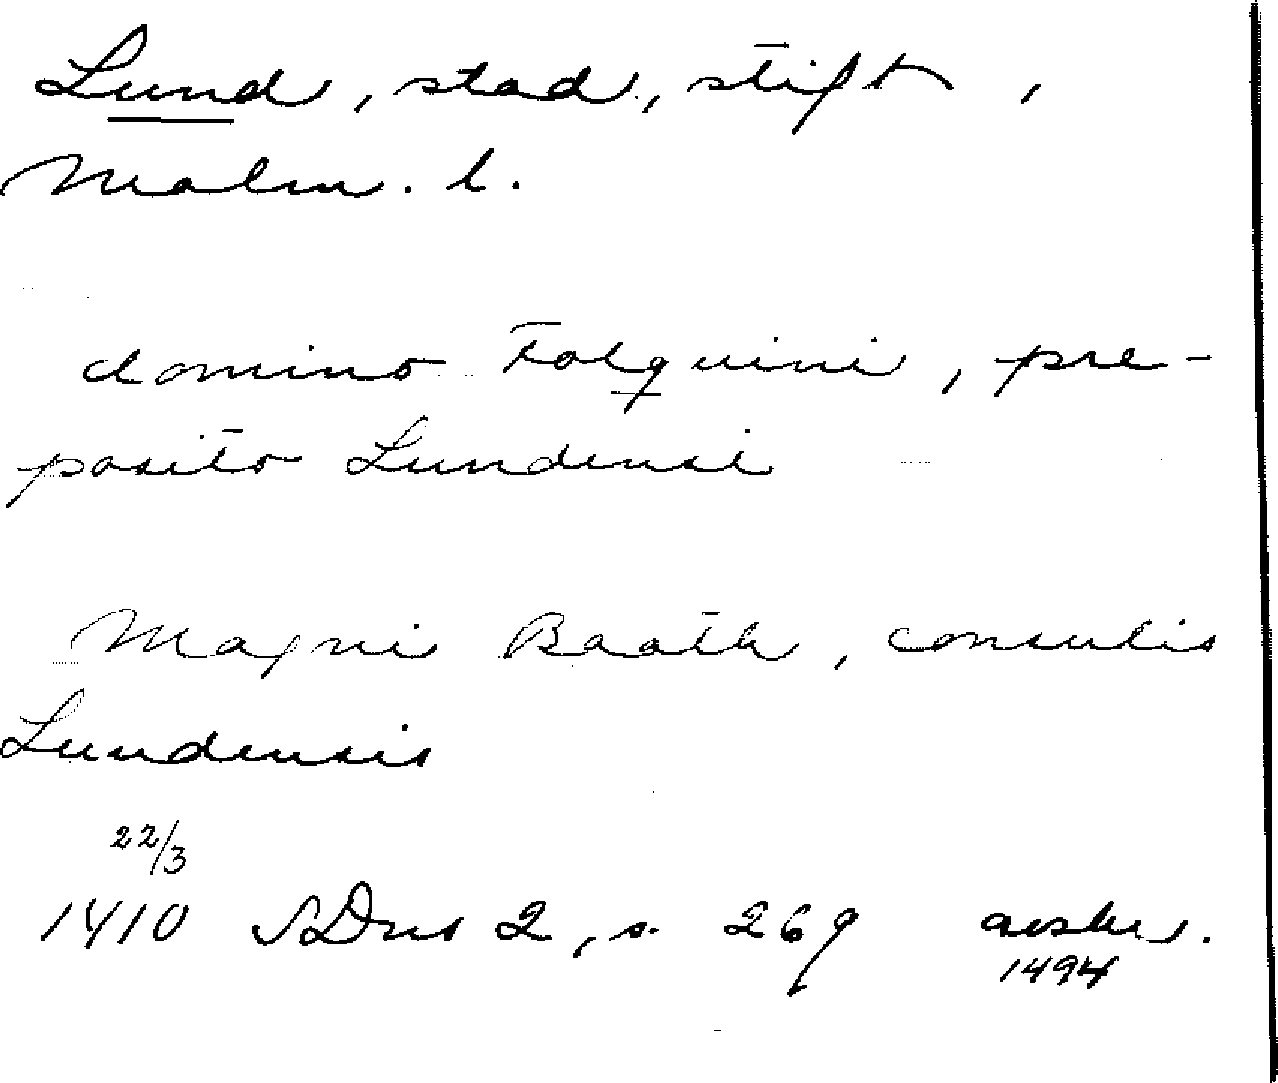 Lund, stad, stift,
Malm. l.
domino Folquini, pre-
posito Lundensi
Magni Baath, consulis
Lundensis
22/3
1410 SDns 2, s. 269 avskr.
1494